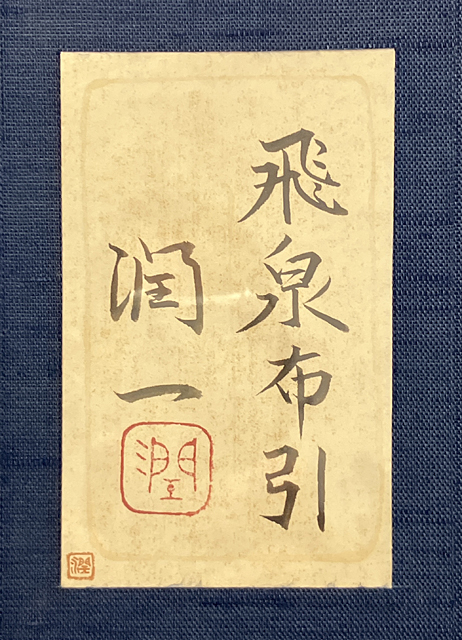 飛泉布引
潤一
潤
潤